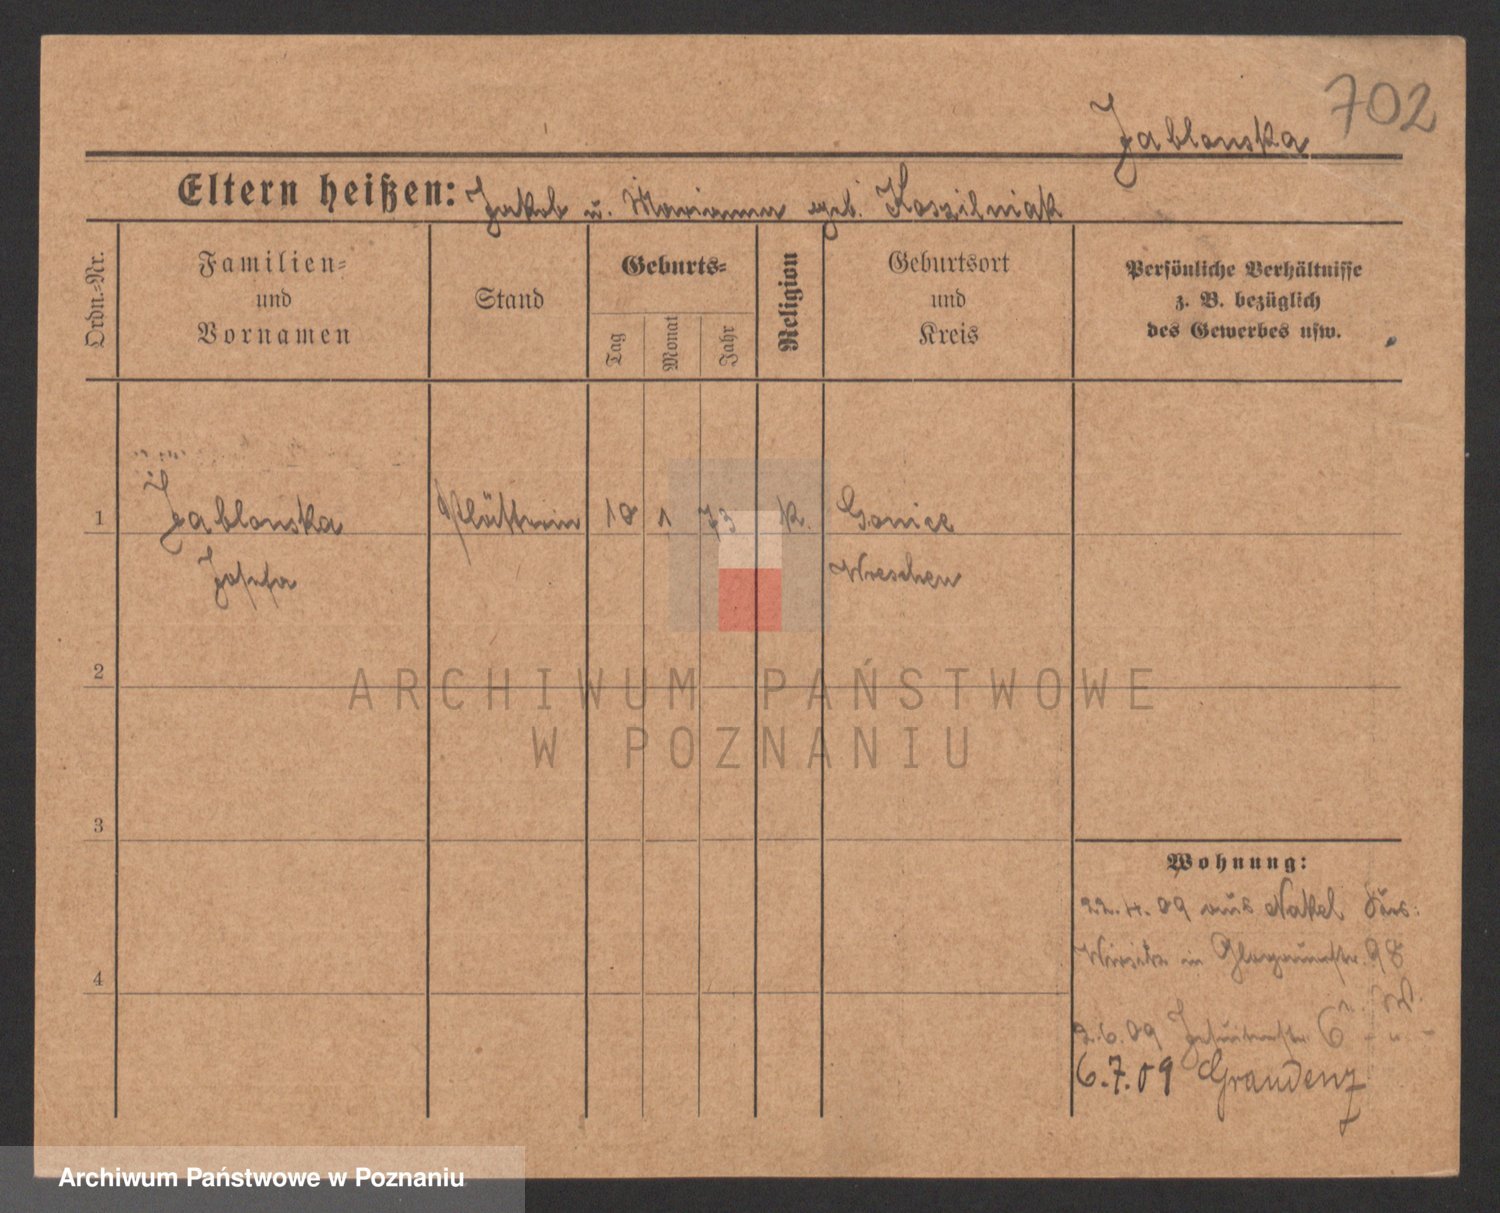 702
Jablonska
Eltern heißen: Jakob u. Marianna geb. Koszilniak
Ordn.-Nr.
Familien-
und
Vornamen
Stand
Geburts-
Tag
Monat
Jahr
Religion
Geburtsort
und
Kreis
Persönliche Verhältnisse
z. B. bezüglich
des Gewerbes usw.
1
Jablonska
Josefa
Plätterin
18
1
73
k.
Gonice
Wreschen
2
3
4
Wohnung:
22.4.09 aus Nakel
Wirsitz in Glogauerstr. 98
2.6.09 Jesuitenstr. 6
6.7.09 Graudenz
ARCHIWUM PAŃSTWOWE
W POZNANIU
Archiwum Państwowe w Poznaniu